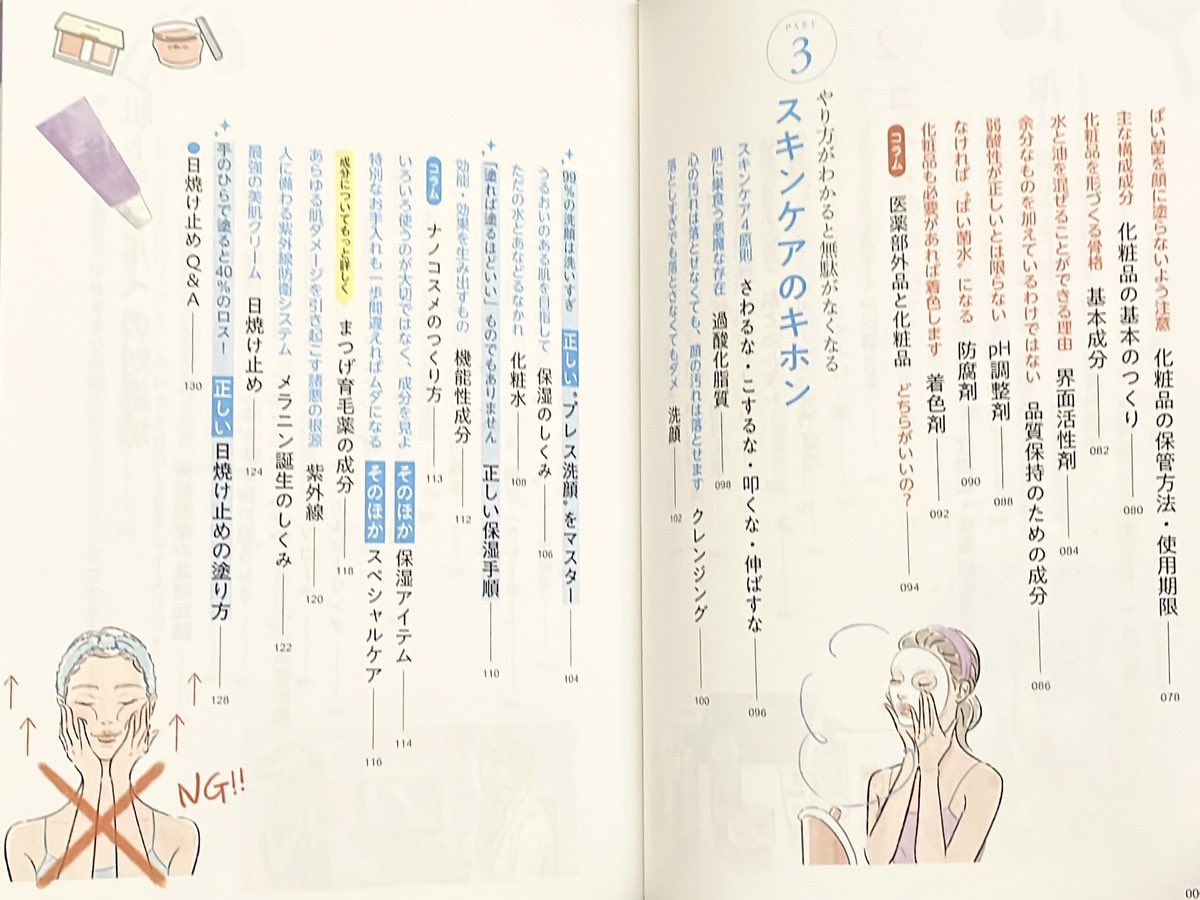 ばい菌を顔に塗らないよう注意 化粧品の保管方法・使用期限 078
主な構成成分 化粧品の基本のつくり 080
化粧品を形づくる骨格 基本成分 082
水と油を混ぜることができる理由 界面活性剤 084
余分なものを加えているわけではない 品質保持のための成分 086
弱酸性が正しいとは限らない pH調整剤 088
なければ〝ばい菌水〟になる 防腐剤 090
化粧品も必要があれば着色します 着色剤 092
コラム 医薬部外品と化粧品 どちらがいいの？ 094
PART
3
やり方がわかると無駄がなくなる
スキンケアのキホン
スキンケア4原則 さわるな・こするな・叩くな・伸ばすな 096
肌に巣食う悪魔な存在 過酸化脂質 098
心の汚れは落とせなくても、顔の汚れは落とせます クレンジング 100
落としすぎでも落とさなくてもダメ 洗顔 102
99%の洗顔は洗いすぎ 正しい〝プレス洗顔〟をマスター 104
うるおいのある肌を目指して 保湿のしくみ 106
ただの水とあなどるなかれ 化粧水 108
「塗れば塗るほどいい」ものでもありません 正しい保湿手順 110
効能・効果を生み出すもの 機能性成分 112
コラム ナノコスメのつくり方 113
いろいろ使うのが大切ではなく、成分を見よ そのほか 保湿アイテム 114
特別なお手入れも一歩間違えればムダになる そのほか スペシャルケア 116
成分についてもっと詳しく まつげ育毛薬の成分 118
あらゆる肌ダメージを引き起こす諸悪の根源 紫外線 120
人に備わる紫外線防衛システム メラニン誕生のしくみ 122
最強の美肌クリーム 日焼け止め 124
手のひらで塗ると40%のロス！ 正しい 日焼け止めの塗り方 128
●日焼け止めQ&A 130
NG!!
00